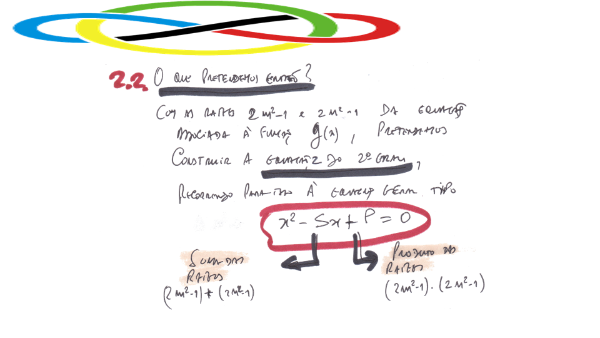 2.2. O QUE PRETENDEMOS ENTÃO?
COM AS RAÍZES 2m²-1 e 2m²-1 DA EQUAÇÃO
ASSOCIADA À FUNÇÃO g(x), PRETENDEMOS
CONSTRUIR A EQUAÇÃO DO 2º GRAU,
RECORRENDO PARA ISSO À EQUAÇÃO GERAL TIPO
x² - Sx + P = 0
SOMA DAS
RAÍZES
(2m²-1)+(2m²-1)
PRODUTO DAS
RAÍZES
(2m²-1).(2m²-1)